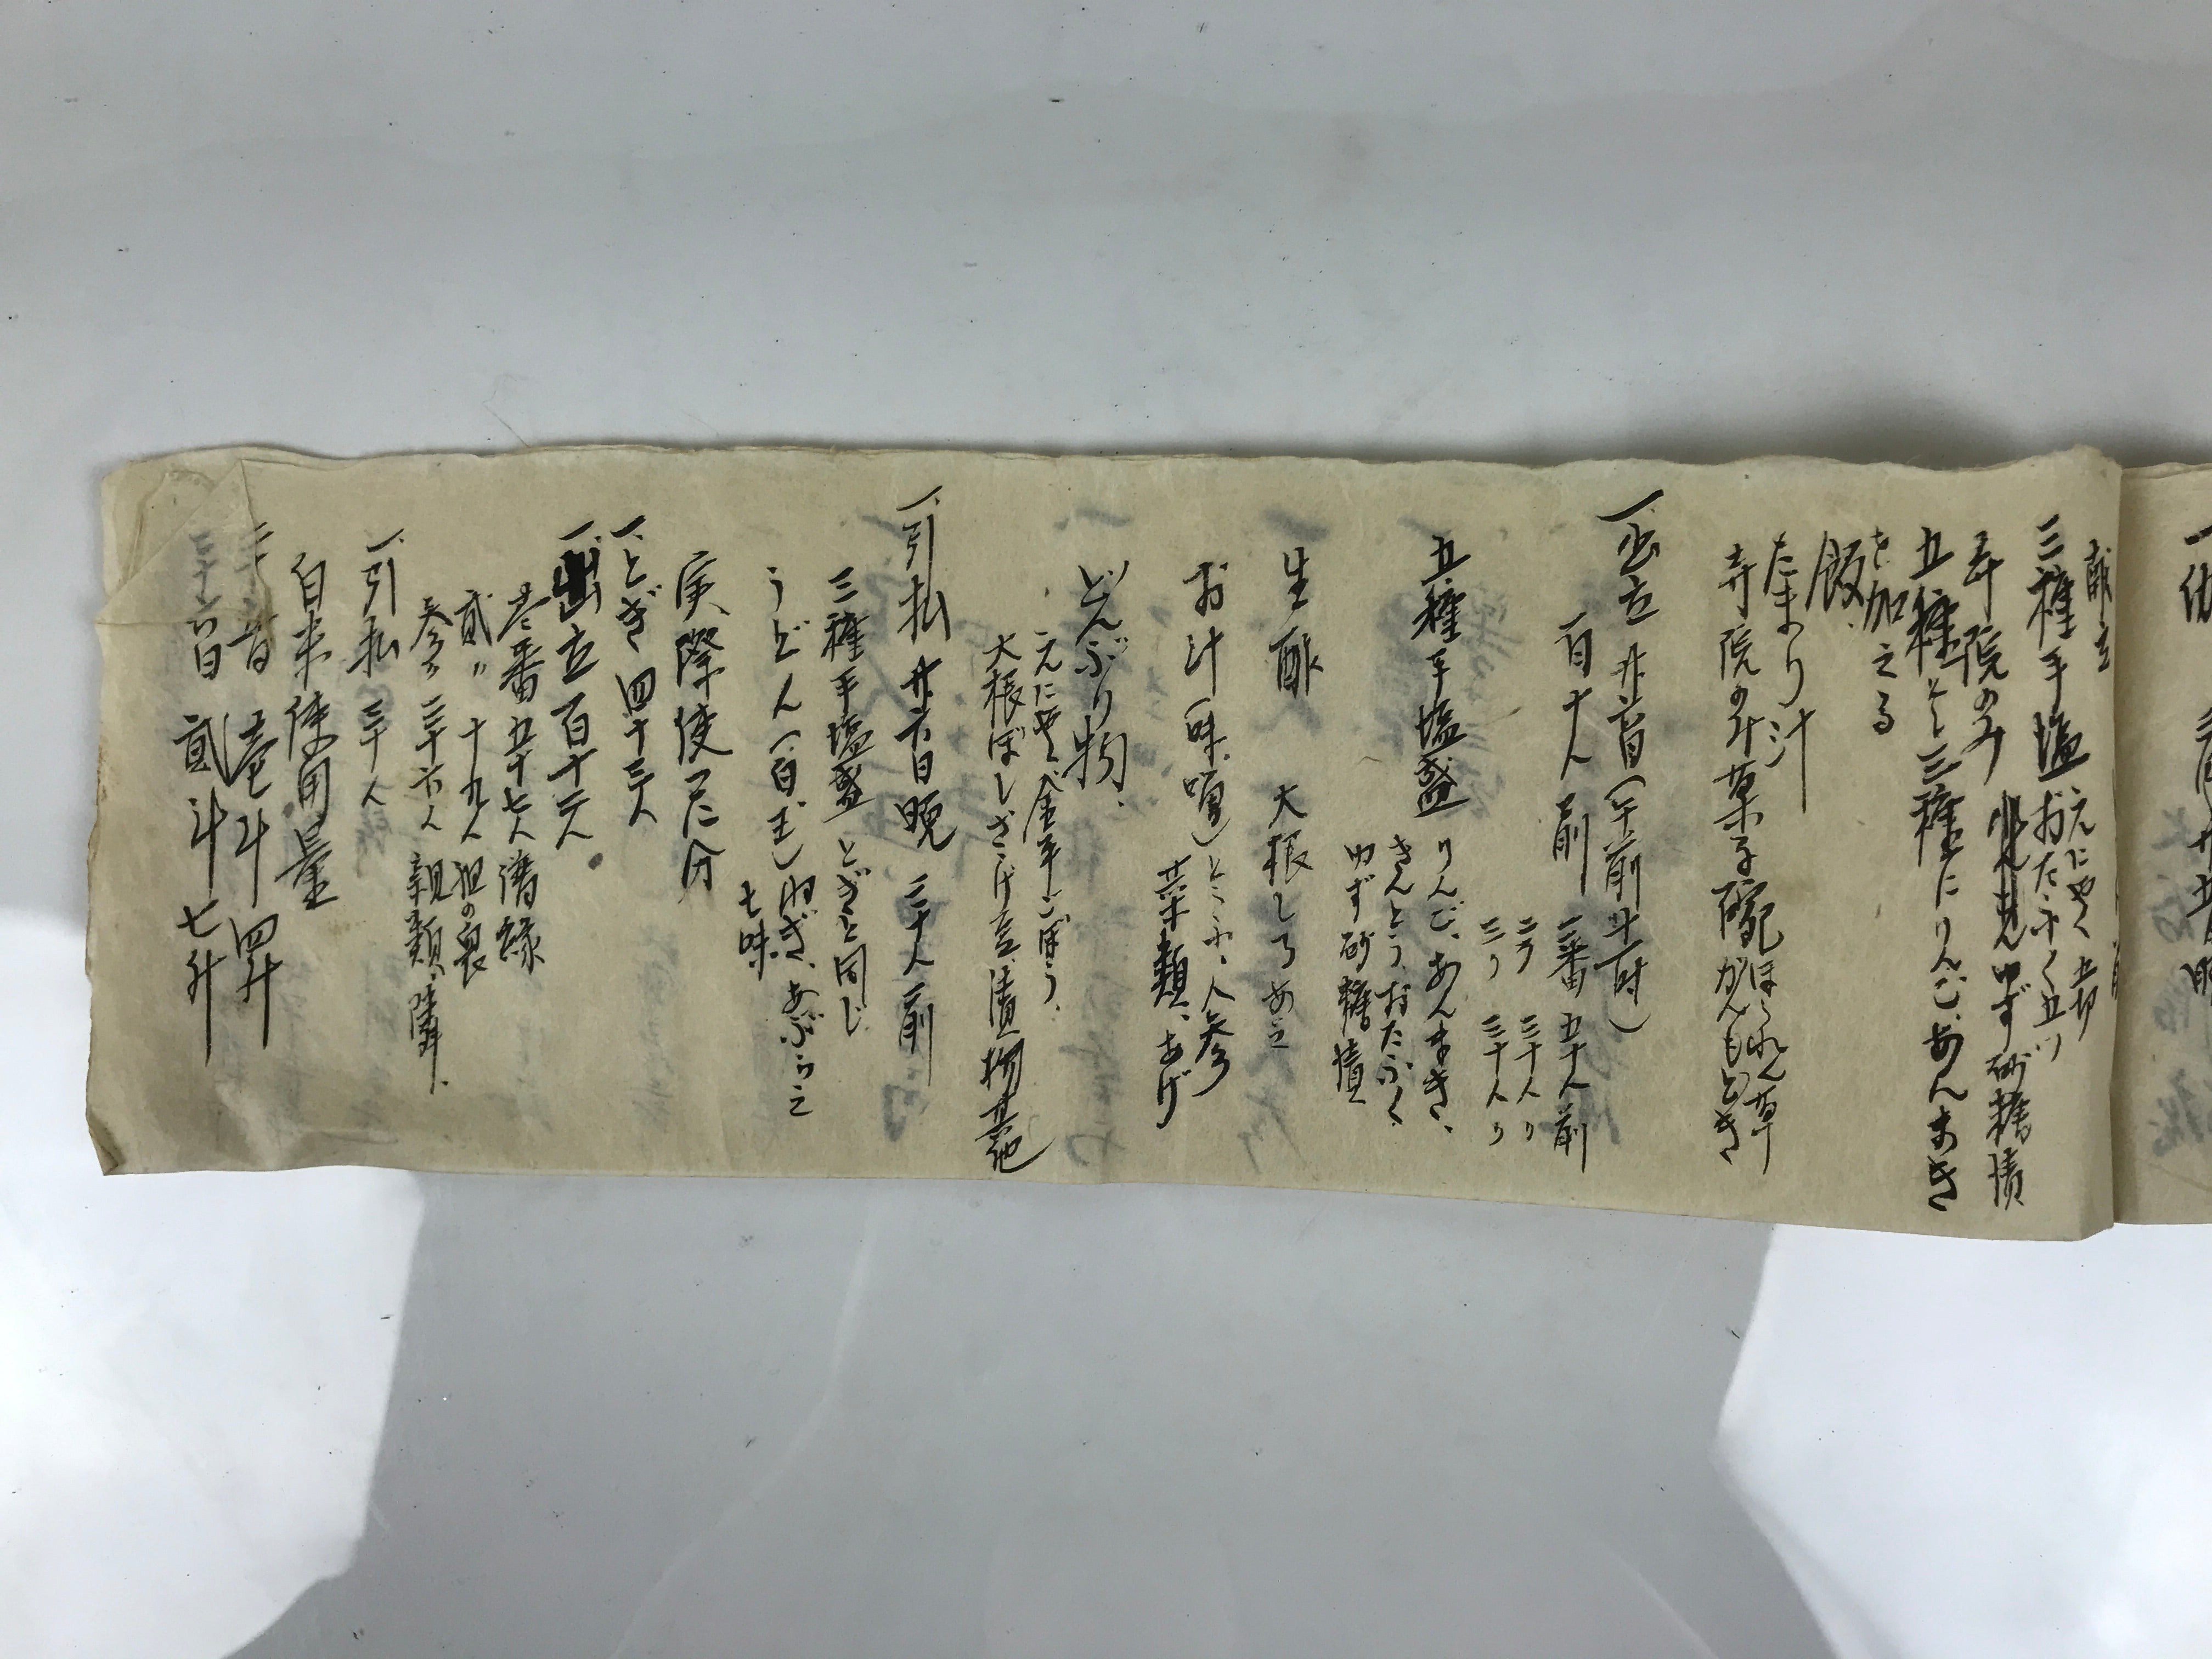 献立
三種手塩 こんにやく 五切
おたふく 五ツ
寺院のみ ゆず砂糖漬
五種とし三種にりんご、あんまき
を加之る
飯
たまり汁
寺院のみ菓子碗 ほうれん草
がんもどき
一、出立 廿六日(午前十一時)
百十人前 一番 五十人前
二〃 三十人〃
三〃 三十人〃
五種手塩盛 りんご、あんまき、
きんとう、おたふく、
ゆず砂糖漬
生酢 大根しろあえ
お汁(味噌) とうふ、人参
菜類、あげ
どんぶり物、
こんにやく、金平ごぼう、
大根ぼしざらげ煮、漬物其他
一、引払 廿六日晩 三十人前
三種手塩盛 とぎと同じ
うどん(百玉) ねぎ、あぶらえ
七味
実際使った分
一、とぎ 四十三人
一、出立 百十二人
壱番 五十七人 濟縁
貮〃 十九人 担の衆
参〃 三十六人 親類、隣家
一、引払 三十人
白米使用量
二十五日 壱斗四升
二十六日 貮斗七升